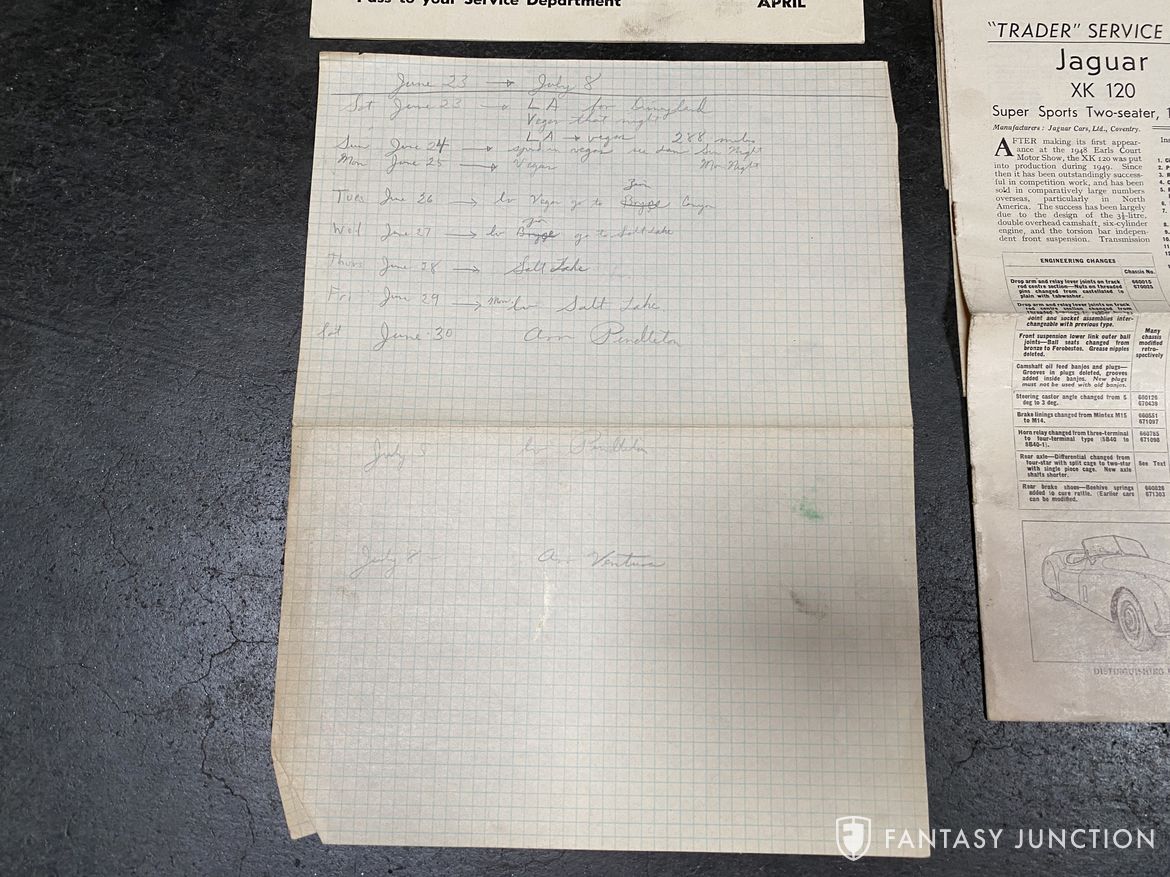 Pass to your Service Department APRIL
June 23 → July 8
Sat June 23 → LA for Disneyland
Vegas that night
LA → Vegas 288 miles
Sun June 24 → Vegas see dam Sun Night
Mon June 25 → Vegas Mon Night
Tues June 26 → lv Vegas go to Zion Canyon
Wed June 27 → lv Zion go to Salt Lake
Thurs June 28 → Salt Lake
Fri June 29 → Morn. lv Salt Lake
Sat June 30 Arr Pendleton
July lv Pendleton
July 8 – Arr Ventura
"TRADER" SERVICE
Jaguar
XK 120
Super Sports Two-seater, 1
Manufacturers : Jaguar Cars, Ltd., Coventry.
AFTER making its first appear-
ance at the 1948 Earls Court
Motor Show, the XK 120 was put
into production during 1949. Since
then it has been outstandingly success-
ful in competition work, and has been
sold in comparatively large numbers
overseas, particularly in North
America. The success has been largely
due to the design of the 3½-litre,
double overhead camshaft, six-cylinder
engine, and the torsion bar indepen-
dent front suspension. Transmission
ENGINEERING CHANGES
Chassis No.
Drop arm and relay lever joints on track
rod centre section—Nuts on threaded
pins changed from castellated to
plain with tabwasher.
660015
670005
Drop arm and relay lever joints on track
rod centre section changed from
joint and socket assemblies inter-
changeable with previous type.
Front suspension lower link outer ball
joints—Ball seats changed from
bronze to Ferobestos. Grease nipples
deleted.
Many
chassis
modified
retro-
spectively
Camshaft oil feed banjos and plugs—
Grooves in plugs deleted, grooves
added inside banjos. New plugs
must not be used with old banjos.
Steering castor angle changed from 5
deg to 3 deg.
660126
670439
Brake linings changed from Mintex M15
to M14.
660551
671097
Horn relay changed from three-terminal
to four-terminal type (SB40 to
SB40-1).
660785
671098
Rear axle—Differential changed from
four-star with split cage to two-star
with single piece cage. New axle
shafts shorter.
See Text
Rear brake shoes—Beehive springs
added to cure rattle. (Earlier cars
can be modified.
660826
671303
DISTINGUISHING
FANTASY JUNCTION